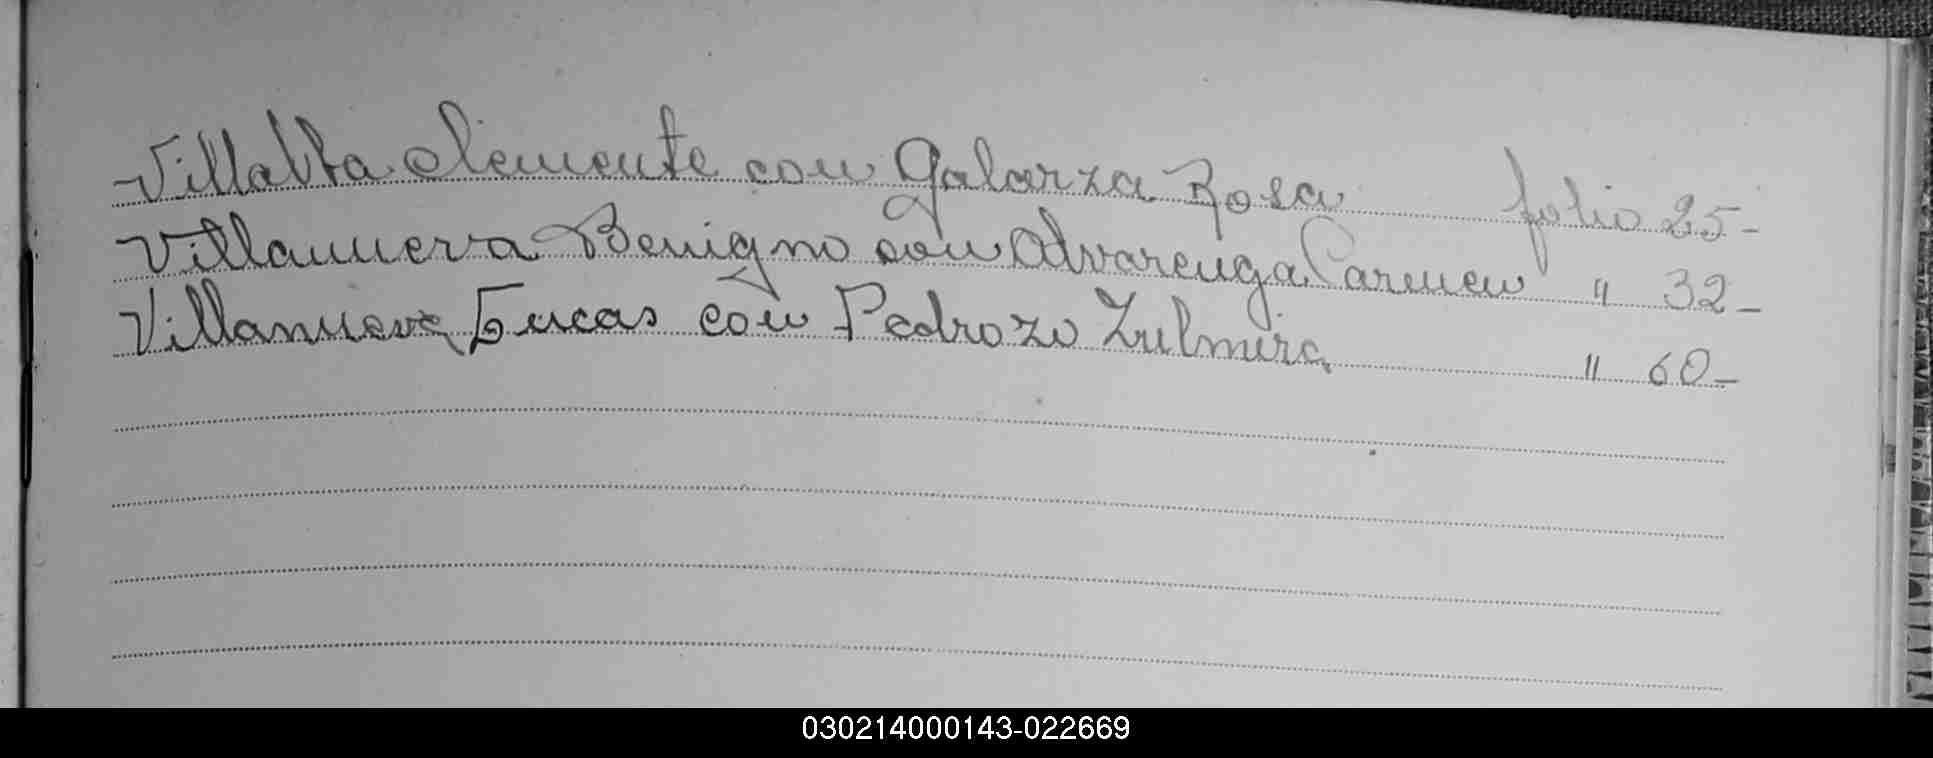 Villalba Clemente con Galarza Rosa folio 25-
Villanueva Benigno con Alvarenga Carmen " 32-
Villanueva Lucas con Pedrozo Zulmira " 60-
030214000143-022669